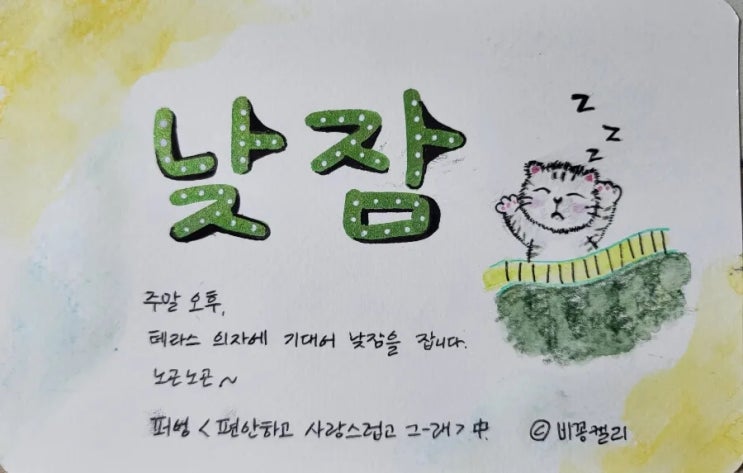 낮잠
z
z
z
주말 오후,
테라스 의자에 기대어 낮잠을 잡니다.
노곤노곤~
퍼엉 <편안하고 사랑스럽고 그-래> 中.
© 비꽁캘리